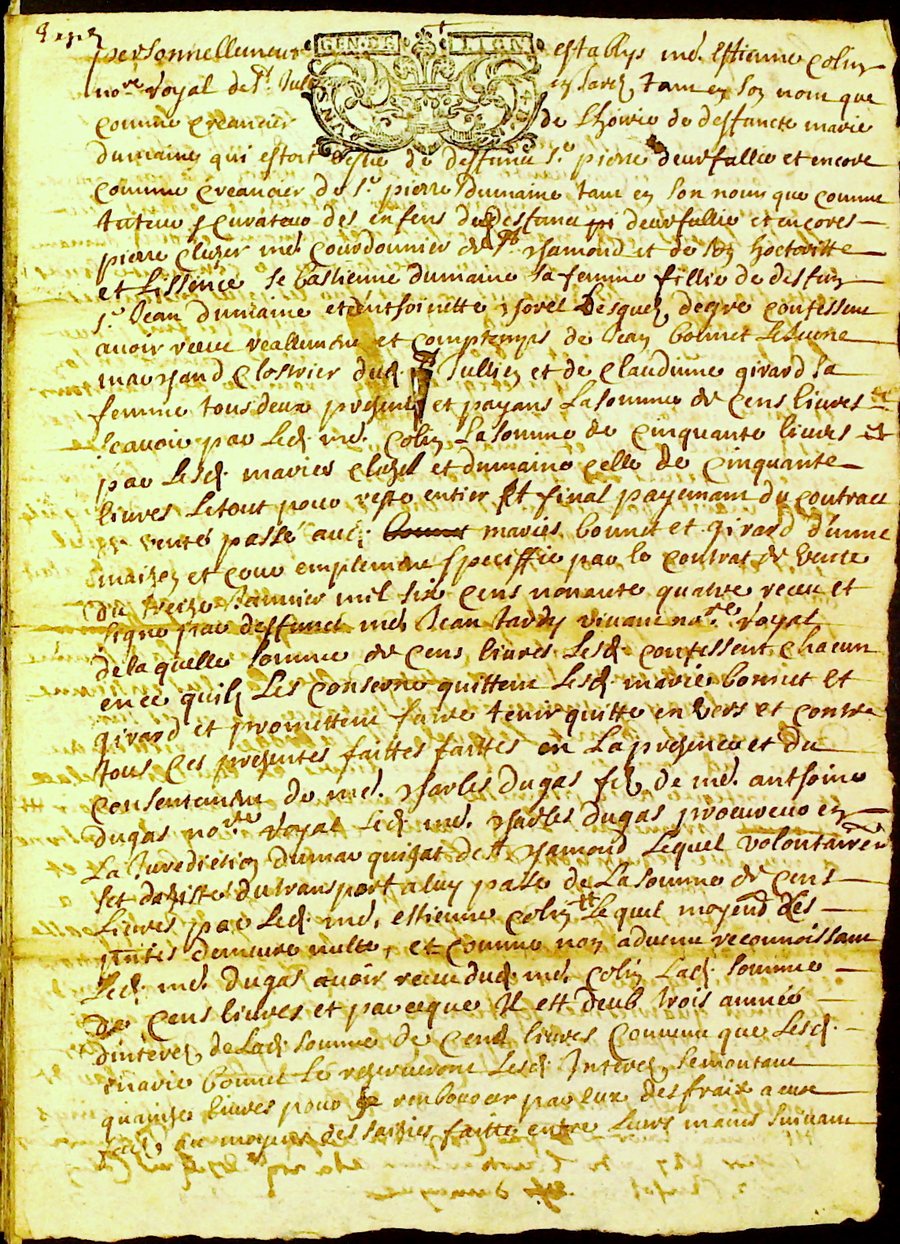 personnellement GEN.DE LION establys me. Estienne Colin
nore. royal de St. Jull en Jarez tant en son nom que
comme creancier de Lhoirie de deffuncte marie
dumaine qui estoit vefve de deffunct Sr. pierre deurfallie et encore
comme creancier de Sr. pierre dumaine tant en son nom que comme
tuteur & curateur des enfens du deffunct deurfallie et encores
pierre cluzer me courdonnier de St. chamond et de son hoctoritte
et Lissence sebastienne dumaine sa femme fillie de deffun
Sr. Jean dumaine et anthoinette Lesquelz de gre confessent
avoir receu reallement et comptemps de Jean bonnet
marchand clostrier dud. St. Jullien et de claudinne girard sa
femme tous deux presents et payans La somme de Cens livres
scavoir par Led. me. Colin La somme de cinquante livres et
par Lesd. maries cluzel et dumaine celle de cinquante
livres Letout pour reste entier Et final payemant du contract
de vente passé aud. bonnet maries bonnet et girard d'unne
maizon et couv emplement speciffié par le contrat de vente
du treize Janvier mil six cens nonante quatre receu et
signe par deffunct me. Jean tardy vivant nore. royal
de laquelle somme de cens livres Lesd. confessent chacun
en ce quilz Les conserne quittent Lesd. marié bonnet Et
girard et promettent faire tenir quitte envers et contre
tous Ces presentes faittes faittes en La presence et du
consentement de me. charles dugas filz de me. anthoine
dugas nore. royal Led. me. charles dugas procureur en
La Jurediction du marquizat de St. chamond Lequel volontairent
set desisté du transport a luy passé de La somme de cens
Livres par Led. me. estienne colin Lequel moyend Les
pntes demeure nulle, et comme non advenu reconnoissant
Led. me. dugas avoir receu dud. me. colin Lad. somme
De cens livres et parceque Il est deub trois année
dinterez de Lad. somme de cens livres convenu que Lesd.
marie bonnet Le reserveront Lesd. Interez se montant
quainze livres pour se rembourcer par eux des fraix a eux
faits au moyen des saizies faitte entre Leurs mains suivant